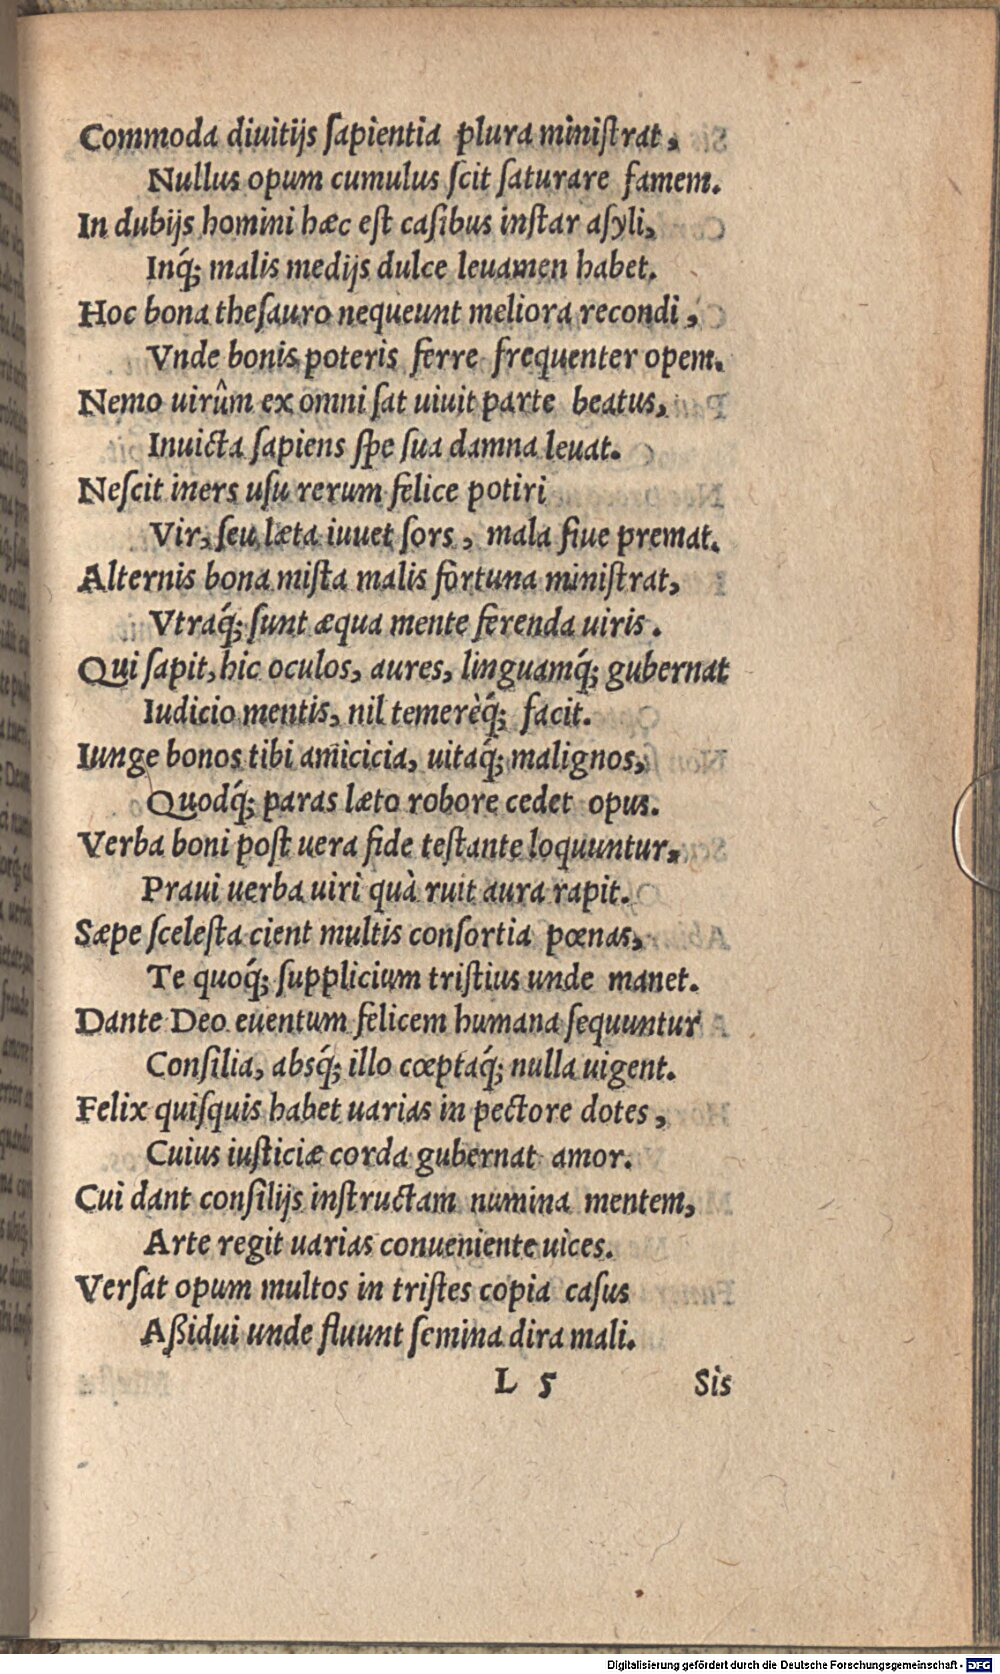 Commoda diuitijs ſapientia plura miniſtrat,
Nullus opum cumulus ſcit ſaturare famem.
In dubijs homini hæc eſt caſibus inſtar aſyli,
Inq́; malis medijs dulce leuamen habet.
Hoc bona theſauro nequeunt meliora recondi,
Vnde bonis poteris ferre frequenter opem.
Nemo uirûm ex omni ſat uiuit parte beatus,
Inuicta ſapiens ſpe ſua damna leuat.
Neſcit iners uſu rerum felice potiri
Vir, ſeu læta iuuet ſors, mala ſiue premat.
Alternis bona miſta malis fortuna miniſtrat,
Vtraq́; ſunt æqua mente ferenda uiris.
Qui ſapit, hic oculos, aures, linguamq́; gubernat
Iudicio mentis, nil temerèq́; facit.
Iunge bonos tibi amicicia, uitaq́; malignos,
Quodq́; paras læto robore cedet opus.
Verba boni poſt uera fide teſtante loquuntur,
Praui uerba uiri quà ruit aura rapit.
Sæpe ſceleſta cient multis conſortia pœnas,
Te quoq́; ſupplicium triſtius unde manet.
Dante Deo euentum felicem humana ſequuntur
Conſilia, absq́; illo cœptaq́; nulla uigent.
Felix quiſquis habet uarias in pectore dotes,
Cuius iuſticiæ corda gubernat amor.
Cui dant conſilijs inſtructam numina mentem,
Arte regit uarias conueniente uices.
Verſat opum multos in triſtes copia caſus
Aßidui unde fluunt ſemina dira mali.
L 5 Sis
Digitalisierung gefördert durch die Deutsche Forschungsgemeinschaft - DFG